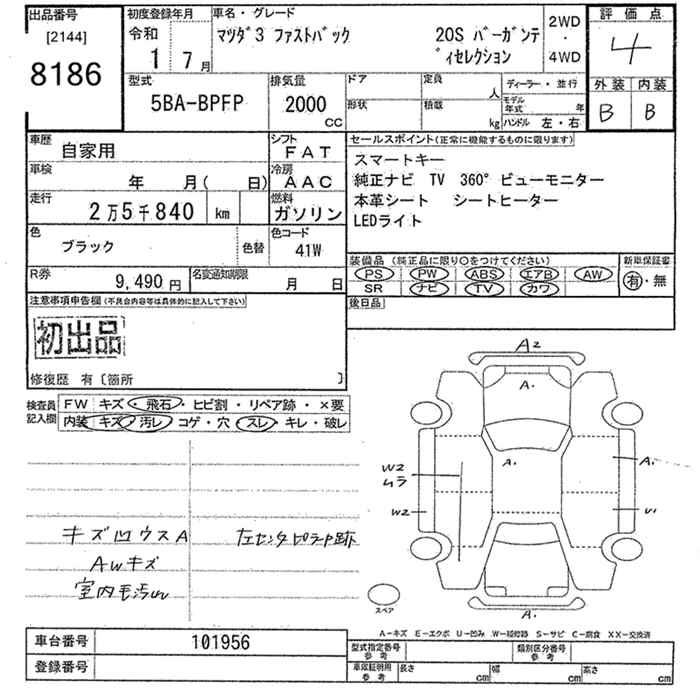 出品番号
[2144]
8186
初度登録年月
令和
1 7月
車名・グレード
マツダ3 ファストバック 20S バーガンデ
ィセレクション
2WD
・
4WD
評価点
4
外装 内装
B B
型式
5BA-BPFP
排気量
2000
CC
ドア
形状
定員
人
積載
kg
ディーラー・並行
モデル年式 年
ハンドル 左・右
車歴
自家用
シフト
FAT
車検
年 月( 日)
冷房
AAC
走行
2万5千840 km
燃料
ガソリン
色
ブラック
色替
色コード
41W
R券
9,490 円
名変通知期限
月 日
セールスポイント(正常に機能するものに限ります)
スマートキー
純正ナビ TV 360° ビューモニター
本革シート シートヒーター
LEDライト
装備品(純正品に限り○をつけてください)
PS PW ABS エアB AW
SR ナビ TV カワ
新車保証書
有・無
後日品
注意事項申告欄(不具合内容等は具体的に記入して下さい)
初出品
修復歴 有〔箇所 〕
検査員
記入欄
FW キズ・飛石・ヒビ割・リペア跡・×要
内装 キズ 汚レ コゲ・穴 スレ・キレ・破レ
キズ凹ウスA
AWキズ
室内毛汚れ
左センタピラーP跡
A2
A.
A.
A.
W2
ムラ
W2
U1
A.
スペア
A−キズ E−エクボ U−凹み W−補修跡 S−サビ C−腐食 XX−交換済
車台番号
101956
登録番号
型式指定番号
参考
類別区分番号
参考
車庫証明用
参考
長さ cm
幅 cm
高さ cm